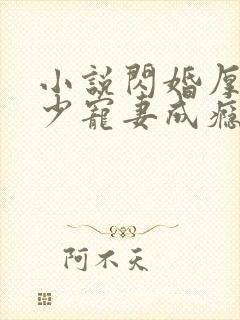 小説閃婚厚
少寵妻成癮
阿不天